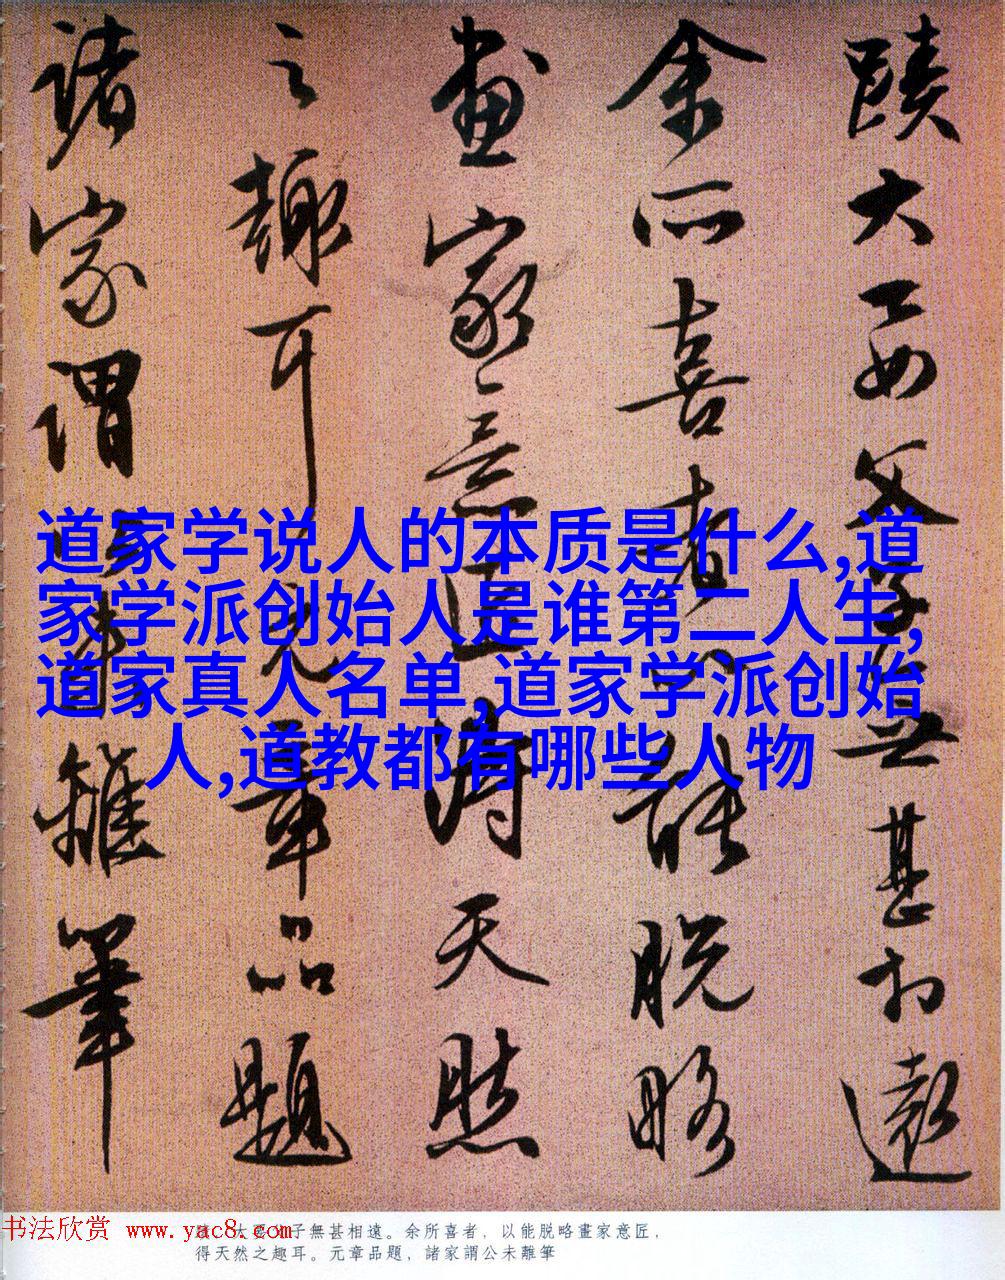 蹟大要父子無甚相遠
余所喜者以能脫略
畫家意匠得天然
之趣耳元章品題
諸家謂公未離筆
道家学说人的本质是什么,道
家学派创始人是谁第二人生,
道家真人名单,道家学派创始
人,道教都有哪些人物
书法欣赏 www.yac8.com
大要父子無甚相遠。余所喜者，以能脫略畫家意匠，
得天然之趣耳。元章品題，諸家謂公未離筆